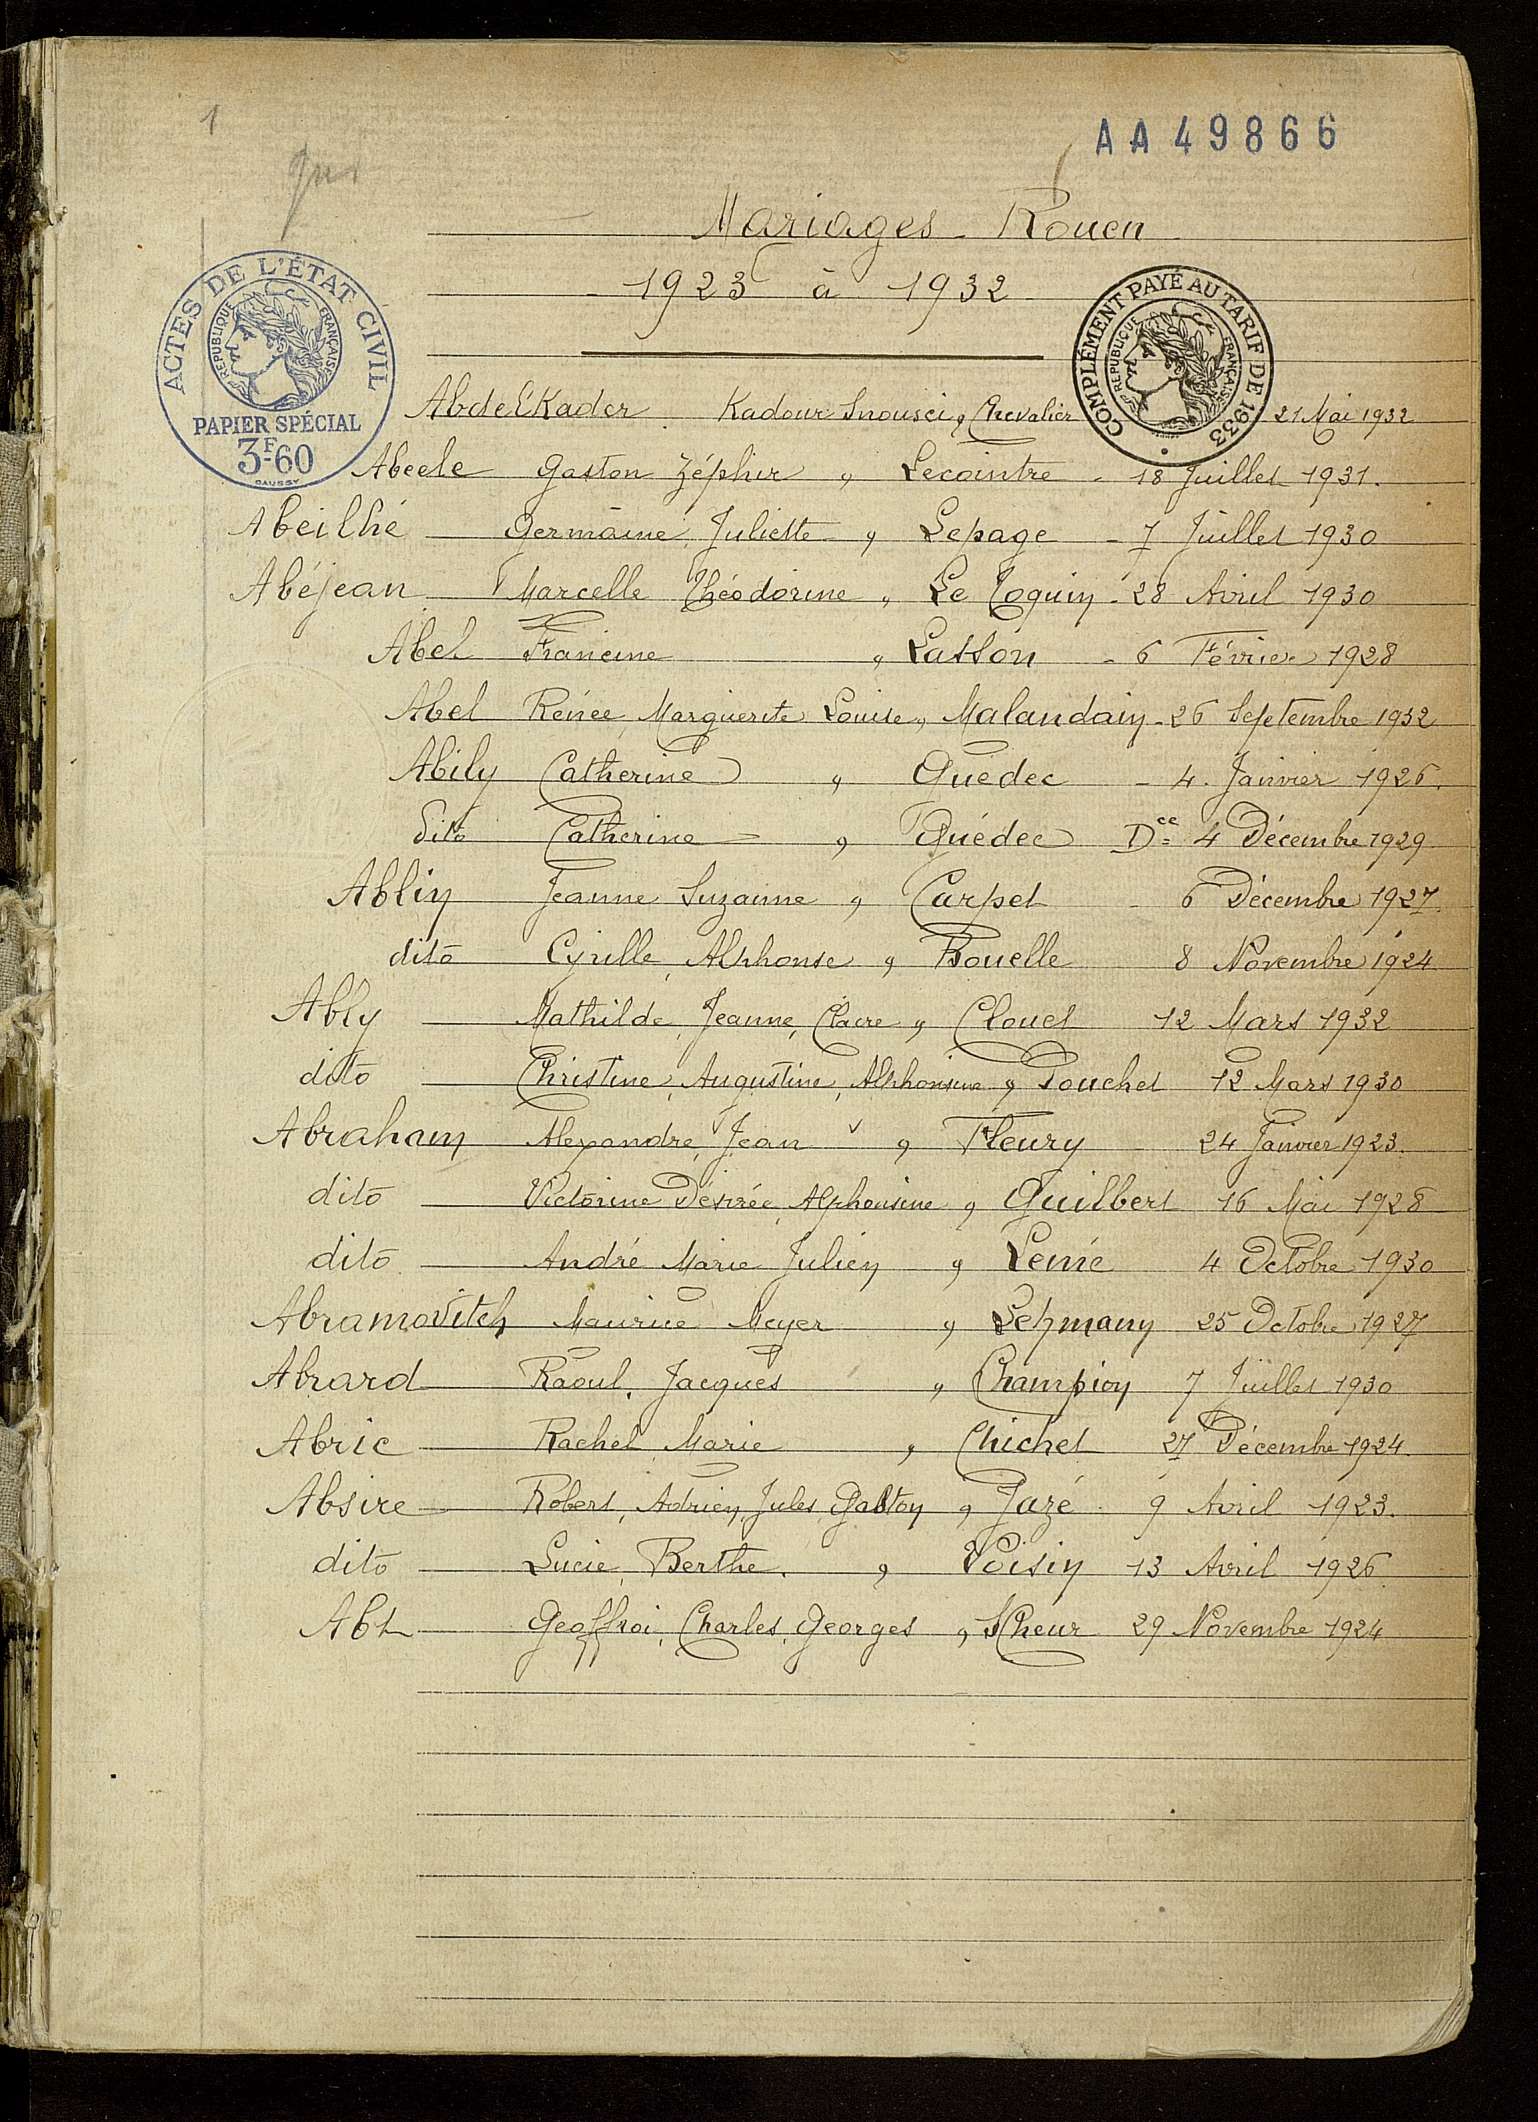 1
AA 49866
Mariages Rouen
1923 à 1932
ACTES DE L'ÉTAT CIVIL
RÉPUBLIQUE FRANÇAISE
PAPIER SPÉCIAL
3F.60
COMPLÉMENT PAYÉ AU TARIF DE 1933
RÉPUBLIQUE FRANÇAISE
Abdel'Kader Kadour Snousci & Chevalier 21 Mai 1932
Abeele Gaston Zéphir & Lecointre - 18 Juillet 1931.
Abeilhé Germaine, Juliette & Lepage - 7 Juillet 1930
Abéjean Marcelle Théodorine & Le Toquin - 28 Avril 1930
Abel Francine & Lasson - 6 Février 1928
Abel Renée, Marguerite Louise & Malandain - 26 Septembre 1932
Abily Catherine & Quédec - 4. Janvier 1926.
dito Catherine & Quédec Dce 4 Décembre 1929
Ablin Jeanne Suzanne & Carpet - 6 Décembre 1927.
dito Cyrille, Alphonse & Rouelle 8 Novembre 1924
Ably Mathilde, Jeanne, Claire & Clouet 12 Mars 1932
dito Christine, Augustine, Alphonsine & Pouchet 12 Mars 1930
Abraham Alexandre, Jean & Fleury 24 Janvier 1923.
dito Victorine Désirée, Alphonsine & Guilbert 16 Mai 1928
dito André Marie Julien & Lenié 4 Octobre 1930
Abramovitch Maurice Meyer & Lehmann 25 Octobre 1927
Abrard Raoul, Jacques & Champion 7 Juillet 1930
Abric Rachel, Marie & Chichet 27 Décembre 1924.
Absire Robert, Adrien, Jules, Gaston & Jazé 9 Avril 1923.
dito Lucie, Berthe. & Voisin 13 Avril 1926
Abt Geoffroi, Charles, Georges & 29 Novembre 1924